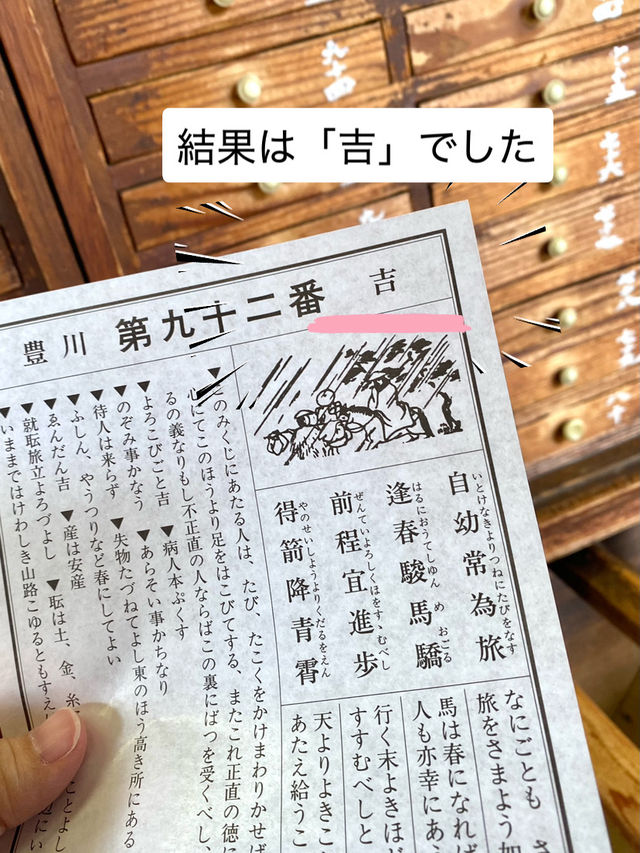 結果は「吉」でした
九十四
豊川 第九十二番 吉
自幼常為旅
いとけなきよりつねにたびをなす
逢春駿馬驕
はるにおうてしゆんめおごる
前程宜進歩
ぜんていよろしくほをすゝむべし
得箭降青霄
やのせいしようよりくだるをえん
なにごとも さ
旅をさまよう如
馬は春になれば
人も亦幸にあ
行く末よきほど
すすむべしと
天よりよきこ
あたえ給うこ
▼このみくじにあたる人は、たび、たこくをかけまわりかせば
心にてこのほうより足をはこびてする、またこれ正直の徳に
るの義なりもし不正直の人ならばこの裏にばつを受くべし、
▼よろこびごと吉 ▼病人本ぷくす
▼のぞみ事かなう ▼あらそい事かちなり
▼待人は来らず ▼失物たづねてよし東のほう高き所にある
▼ふしん、やうつりなど春にしてよい
▼ゑんだん吉 ▼産は安産
▼就転旅立よろづよし ▼転は土、金、糸
▼いままではけわしき山路こゆるともすえ